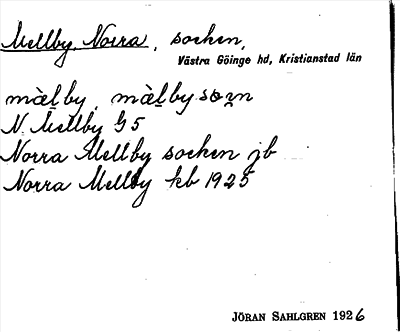 Mellby, Norra, socken,
Västra Göinge hd, Kristianstad län
mæ̀l̠by, mæ̀l̠bysɷn̠
N. Mellby G 5
Norra Mellby socken jb
Norra Mellby kb 1925
JÖRAN SAHLGREN 1926